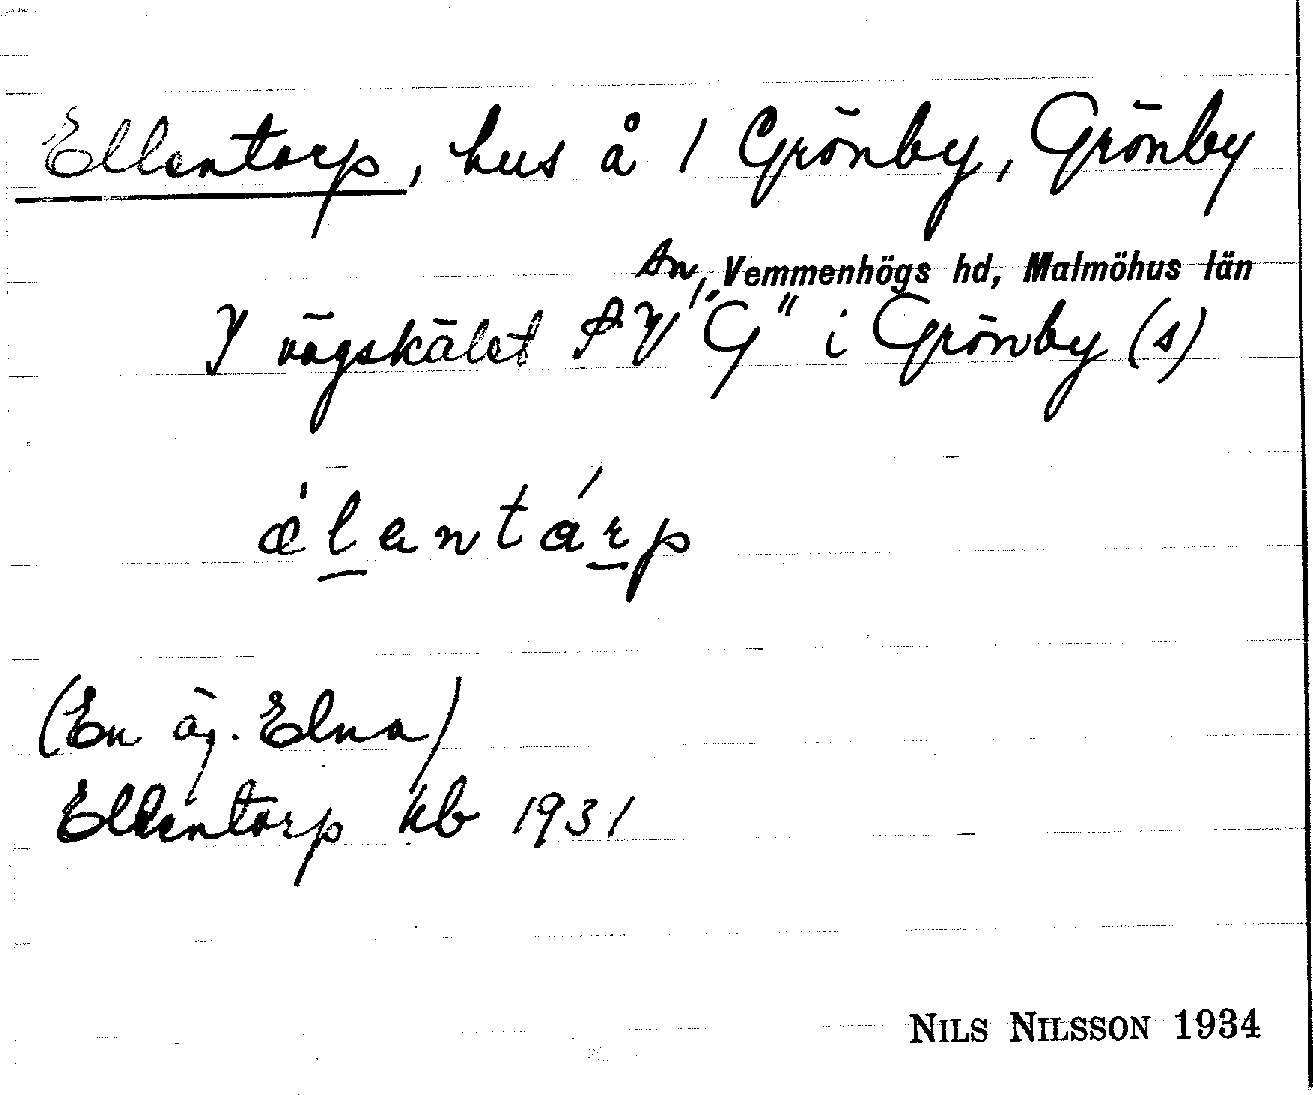 Ellentorp, hus å 1 Grönby, Grönby
sn, Vemmenhögs hd, Malmöhus län
I vägskälet SV "G" i Grönby (s)
ælentárp
(En äg. Elna)
Ellentorp kb 1931
NILS NILSSON 1934